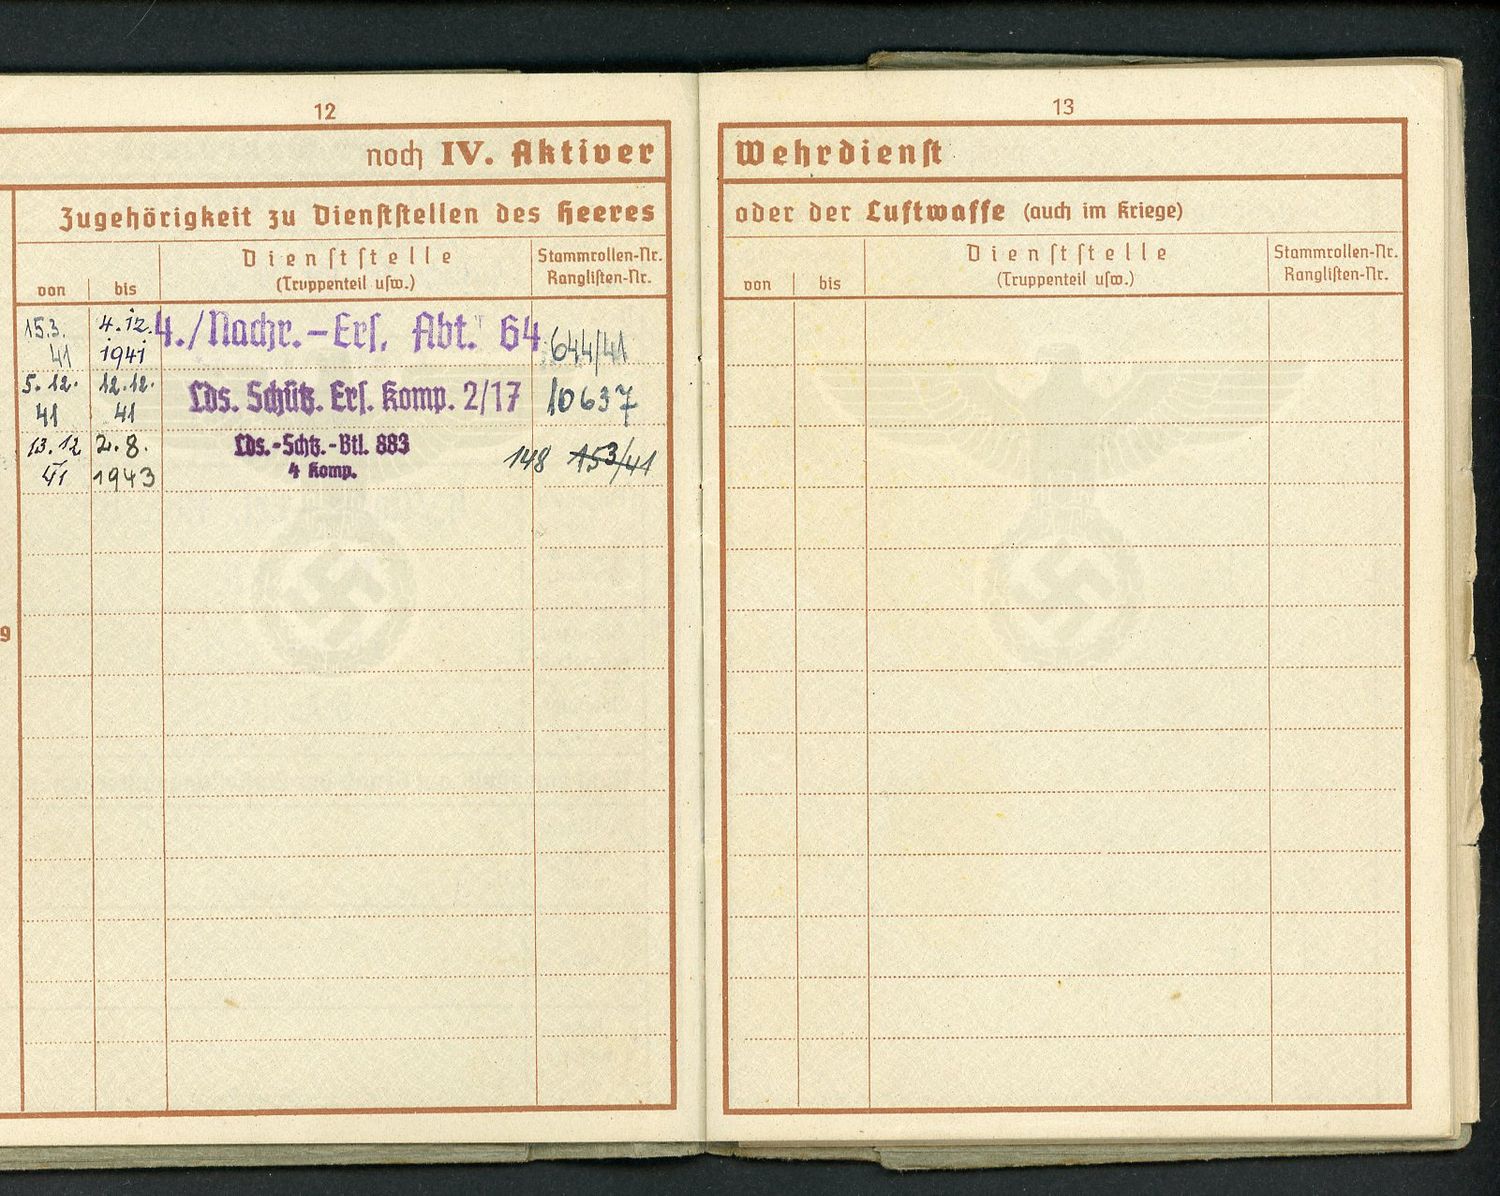 12
noch IV. Aktiver
Zugehörigkeit zu Dienststellen des Heeres
von
bis
Dienststelle
(Truppenteil usw.)
Stammrollen-Nr.
Ranglisten-Nr.
15.3. 4.12. 4./Nachr.-Ers. Abt. 64 644/41
41 1941
5.12. 12.12. Lds. Schütz. Ers. Komp. 2/17 10637
41 41
13.12 2.8. Lds.-Schtz.-Btl. 883 148 153/41
41 1943 4 Komp.
9
13
Wehrdienst
oder der Luftwaffe (auch im Kriege)
von
bis
Dienststelle
(Truppenteil usw.)
Stammrollen-Nr.
Ranglisten-Nr.